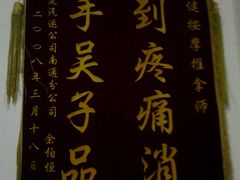 健按摩推拿师
到疼痛消
手吴子品
定汽运公司南通分公司 余伯恒
二〇〇八年三月十八日